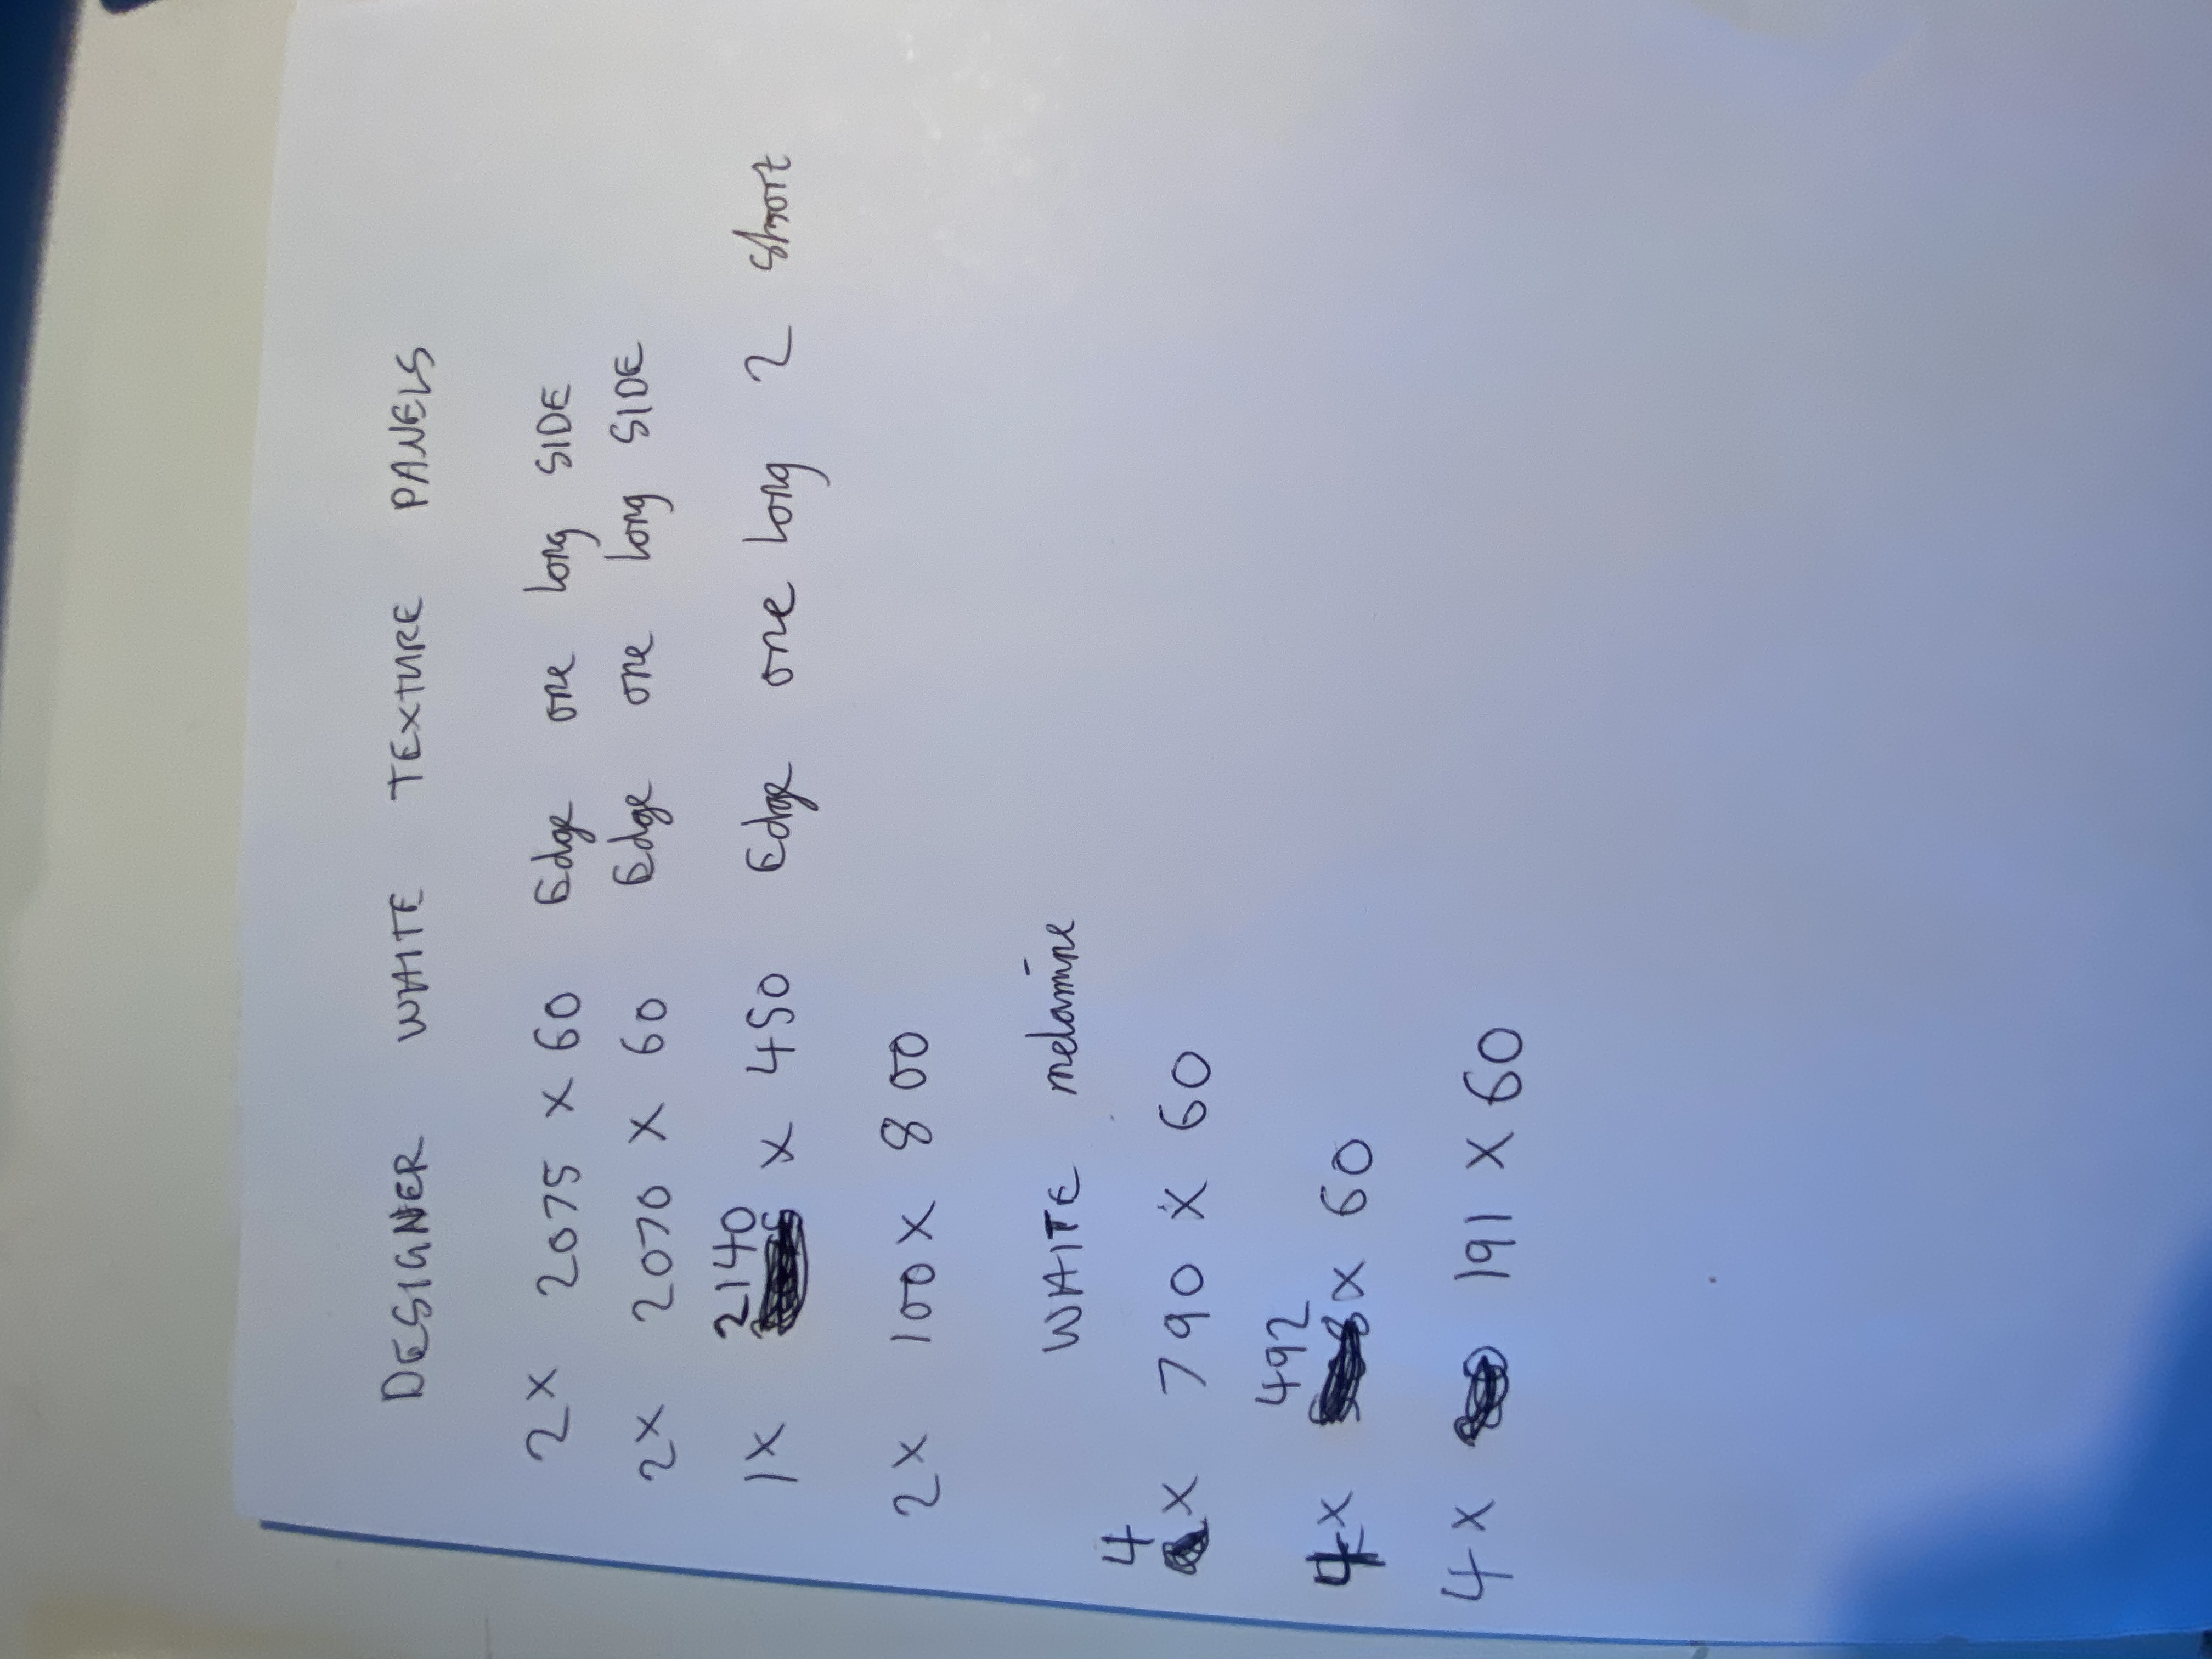 DESIGNER WHITE TEXTURE PANELS
2x 2075 x 60 Edge one long SIDE
2x 2070 x 60 Edge one long SIDE
1x 2140 x 450 Edge one long 2 short
2x 100 x 800
WHITE melamine
4x 790 x 60
4x 492 x 60
4x 191 x 60